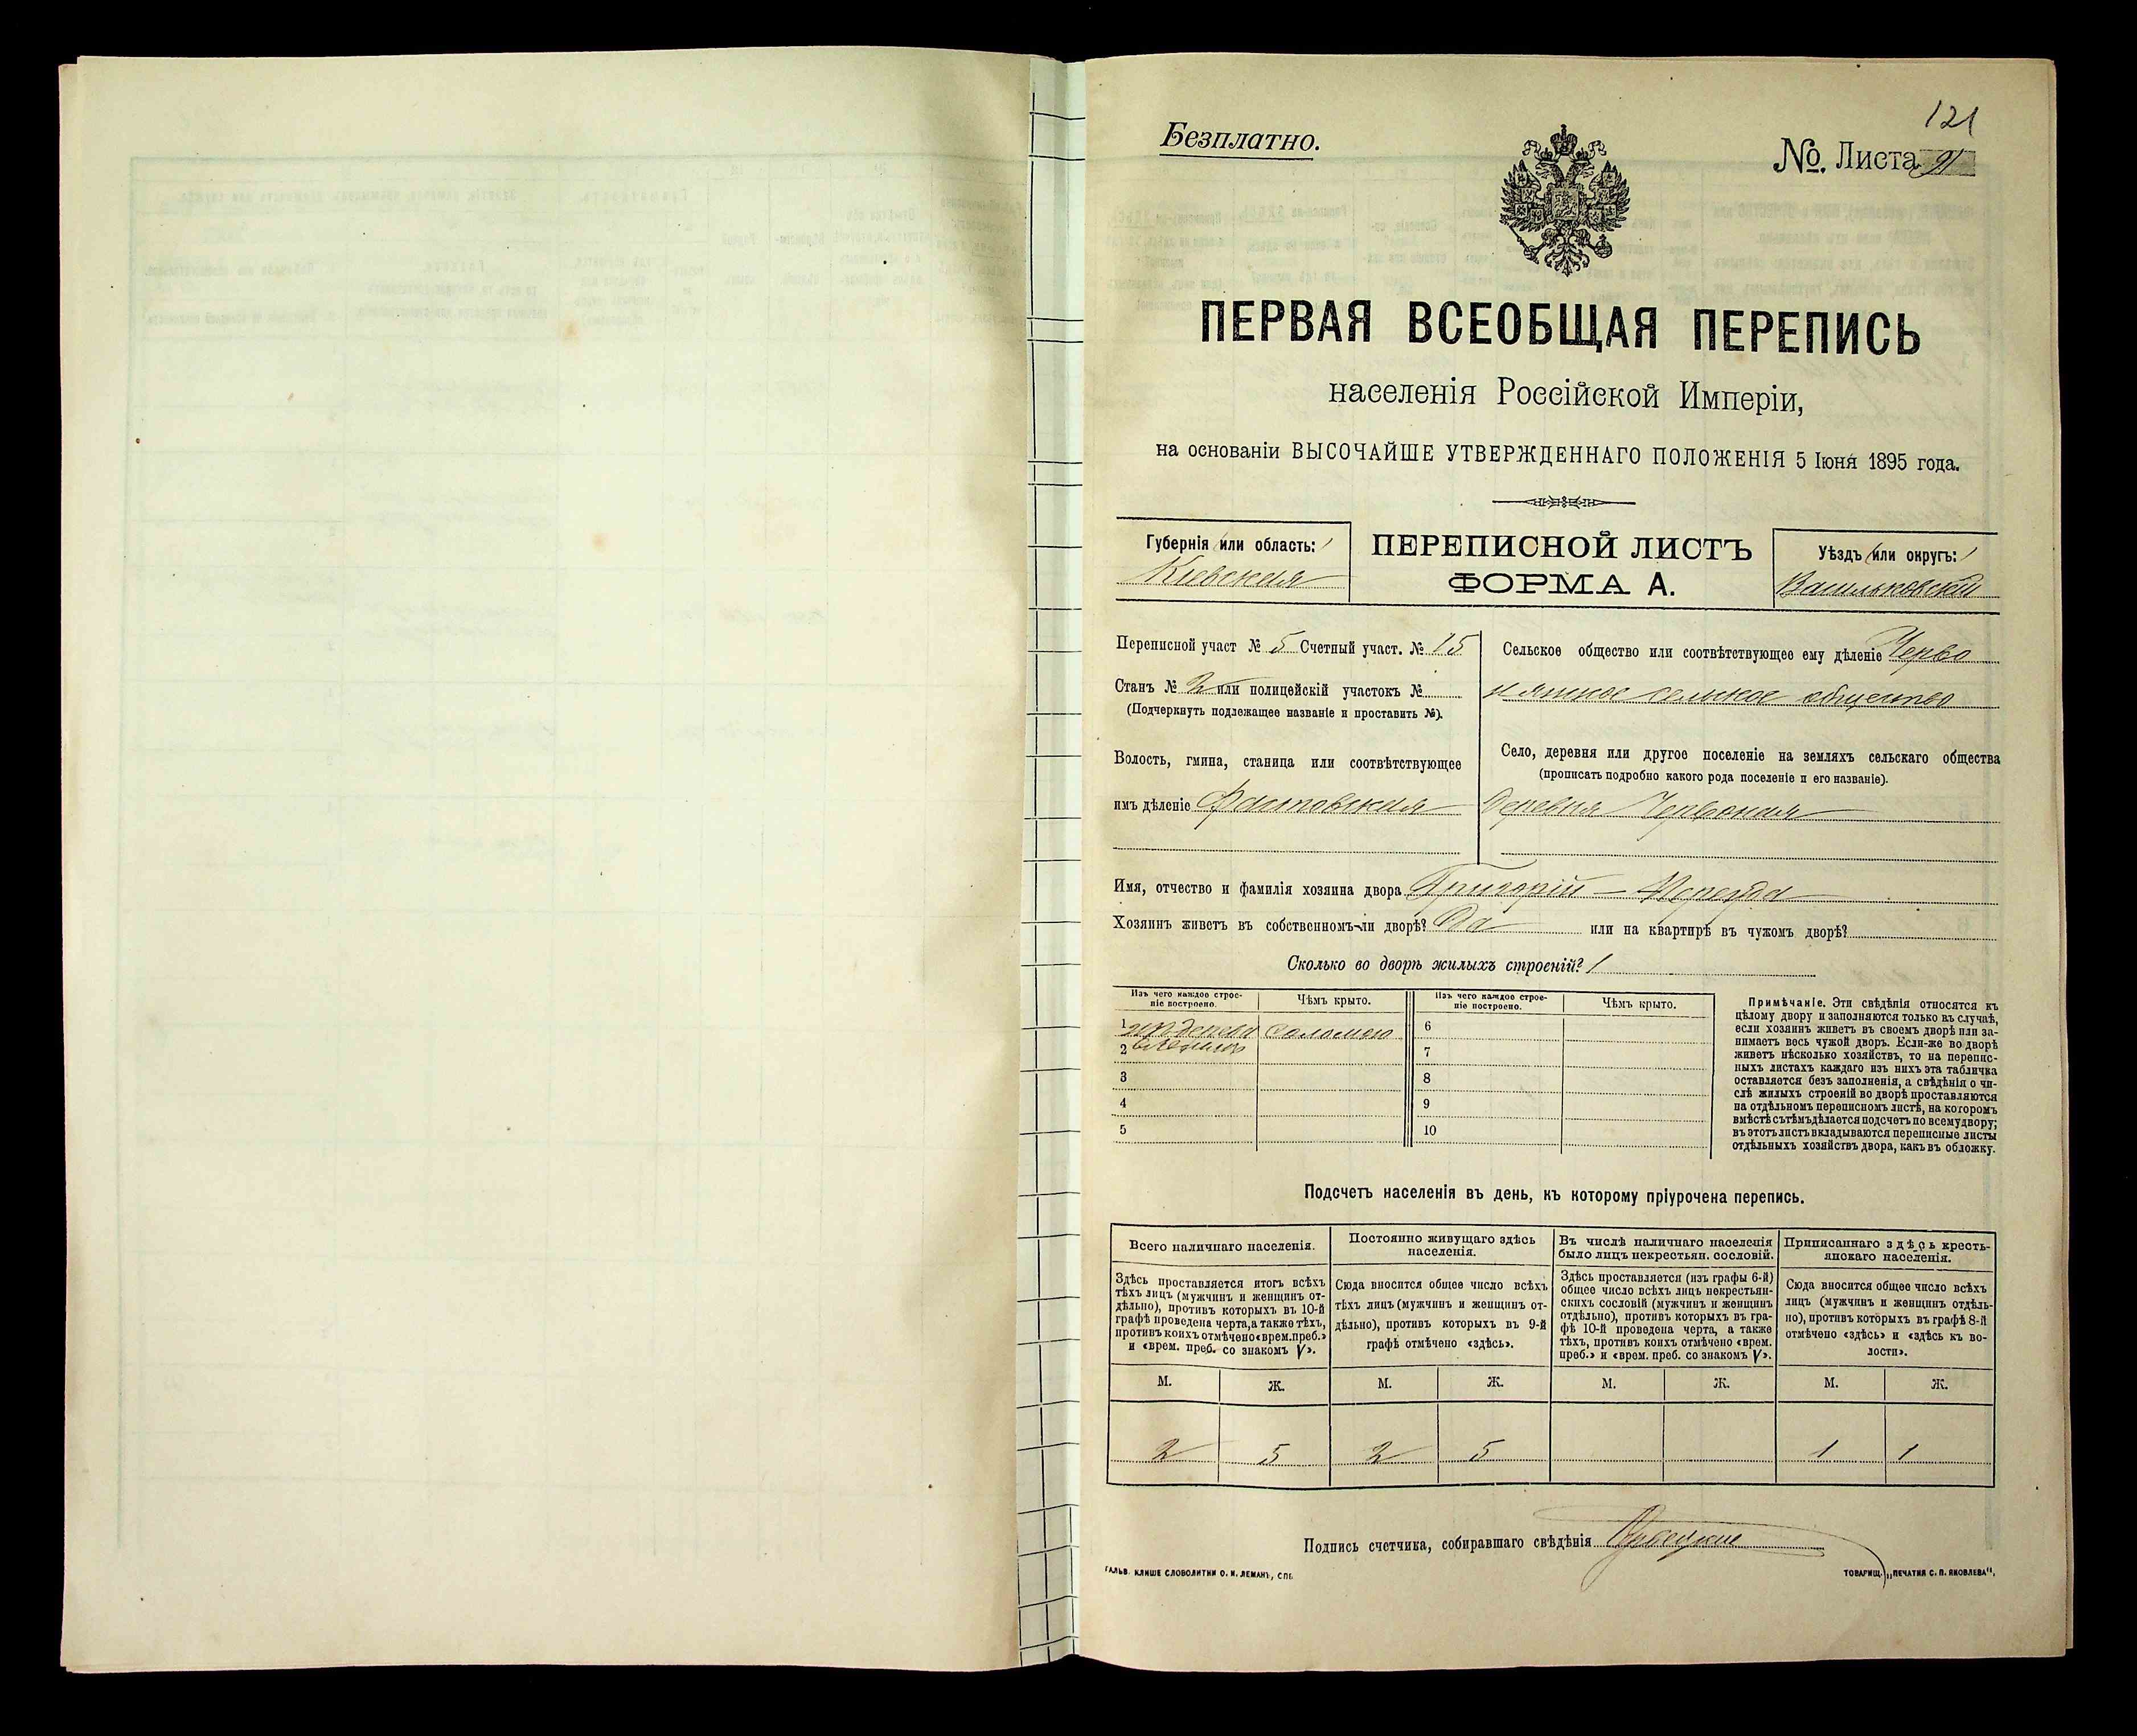 121
Безплатно.
№. Листа 91
ПЕРВАЯ ВСЕОБЩАЯ ПЕРЕПИСЬ
населенія Россійской Имперіи,
на основаніи ВЫСОЧАЙШЕ УТВЕРЖДЕННАГО ПОЛОЖЕНІЯ 5 Іюня 1895 года.
Губернія или область:
Кіевская
ПЕРЕПИСНОЙ ЛИСТЪ
ФОРМА А.
Уѣздъ или округъ:
Васильковскій
Переписной участ № 5 Счетный участ. № 15
Станъ № 2 или полицейскій участокъ №
(Подчеркнуть подлежащее названіе и проставить №).
Волость, гмина, станица или соотвѣтствующее
имъ дѣленіе
Сельское общество или соотвѣтствующее ему дѣленіе Черво
нянское сельское общество
Село, деревня или другое поселеніе на земляхъ сельскаго общества
(прописать подробно какого рода поселеніе и его названіе).
Деревня Червоная
Имя, отчество и фамилія хозяина двора Григорій – Череда
Хозяинъ живетъ въ собственномъ-ли дворѣ? Да или на квартирѣ въ чужомъ дворѣ?
Сколько во дворѣ жилыхъ строеній? 1
Изъ чего каждое строе-
ніе построено.
Чѣмъ крыто.
Изъ чего каждое строе-
ніе построено.
Чѣмъ крыто.
1 изъ дерева соломою 6
2 7
3 8
4 9
5 10
Примѣчаніе. Эти свѣдѣнія относятся къ
цѣлому двору и заполняются только въ случаѣ,
если хозяинъ живетъ въ своемъ дворѣ или за-
нимаетъ весь чужой дворъ. Если-же во дворѣ
живетъ нѣсколько хозяйствъ, то на перепис-
ныхъ листахъ каждаго изъ нихъ эта табличка
оставляется безъ заполненія, а свѣдѣнія о чи-
слѣ жилыхъ строеній во дворѣ проставляются
на отдѣльномъ переписномъ листѣ, на которомъ
вмѣстѣ съ тѣмъ дѣлается подсчетъ по всему двору;
въ этотъ листъ вкладываются переписные листы
отдѣльныхъ хозяйствъ двора, какъ въ обложку.
Подсчетъ населенія въ день, къ которому пріурочена перепись.
Всего наличнаго населенія.
Здѣсь проставляется итогъ всѣхъ
тѣхъ лицъ (мужчинъ и женщинъ от-
дѣльно), противъ которыхъ въ 10-й
графѣ проведена черта, а также тѣхъ,
противъ коихъ отмѣчено «врем. преб.»
и «врем. преб. со знакомъ V».
Постоянно живущаго здѣсь
населенія.
Сюда вносится общее число всѣхъ
тѣхъ лицъ (мужчинъ и женщинъ от-
дѣльно), противъ которыхъ въ 9-й
графѣ отмѣчено «здѣсь».
Въ числѣ наличнаго населенія
было лицъ некрестьян. сословій.
Здѣсь проставляется (изъ графы 6-й)
общее число всѣхъ лицъ некрестьян-
скихъ сословій (мужчинъ и женщинъ
отдѣльно), противъ которыхъ въ гра-
фѣ 10-й проведена черта, а также
тѣхъ, противъ коихъ отмѣчено «врем.
преб.» и «врем. преб. со знакомъ V».
Приписаннаго здѣсь кресть-
янскаго населенія.
Сюда вносится общее число всѣхъ
лицъ (мужчинъ и женщинъ отдѣль-
но), противъ которыхъ въ графѣ 8-й
отмѣчено «здѣсь» и «здѣсь къ во-
лости».
М. Ж. М. Ж. М. Ж. М. Ж.
2 5 2 5 1 1
Подпись счетчика, собиравшаго свѣдѣнія
ГАЛЬВ. КЛИШЕ СЛОВОЛИТНИ О. И. ЛЕМАНЪ, СПБ.
ТОВАРИЩ. „ПЕЧАТНЯ С. П. ЯКОВЛЕВА".